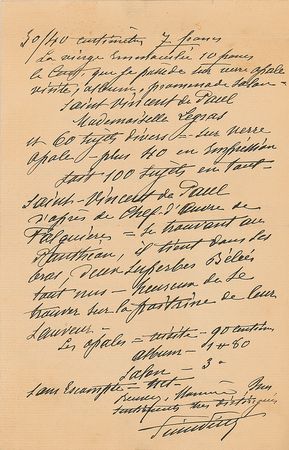 30/40 centimètres 7 francs
La vierge immaculée 10 francs
le Cent, que je possède sur verre opale
visite, album, promenade salon -
Saint Vincent de Paul
Mademoiselle Legras
et 60 sujets divers - sur verre
opale - plus 40 en impression
soit 100 sujets en tout -
Saint-Vincent de Paul
d'après le Chef-d'œuvre de
Falguière = se trouvant au
Panthéon, il tient dans les
bras, deux superbes Bébés
tout nus - heureux de se
trouver sur la poitrine de leur
Sauveur -
Les opales = visite - 90 centimes
album - 1 # 80
Salon - 3 "
sans Escompte - Net -
Monsieur, mes
sentiments très distingués